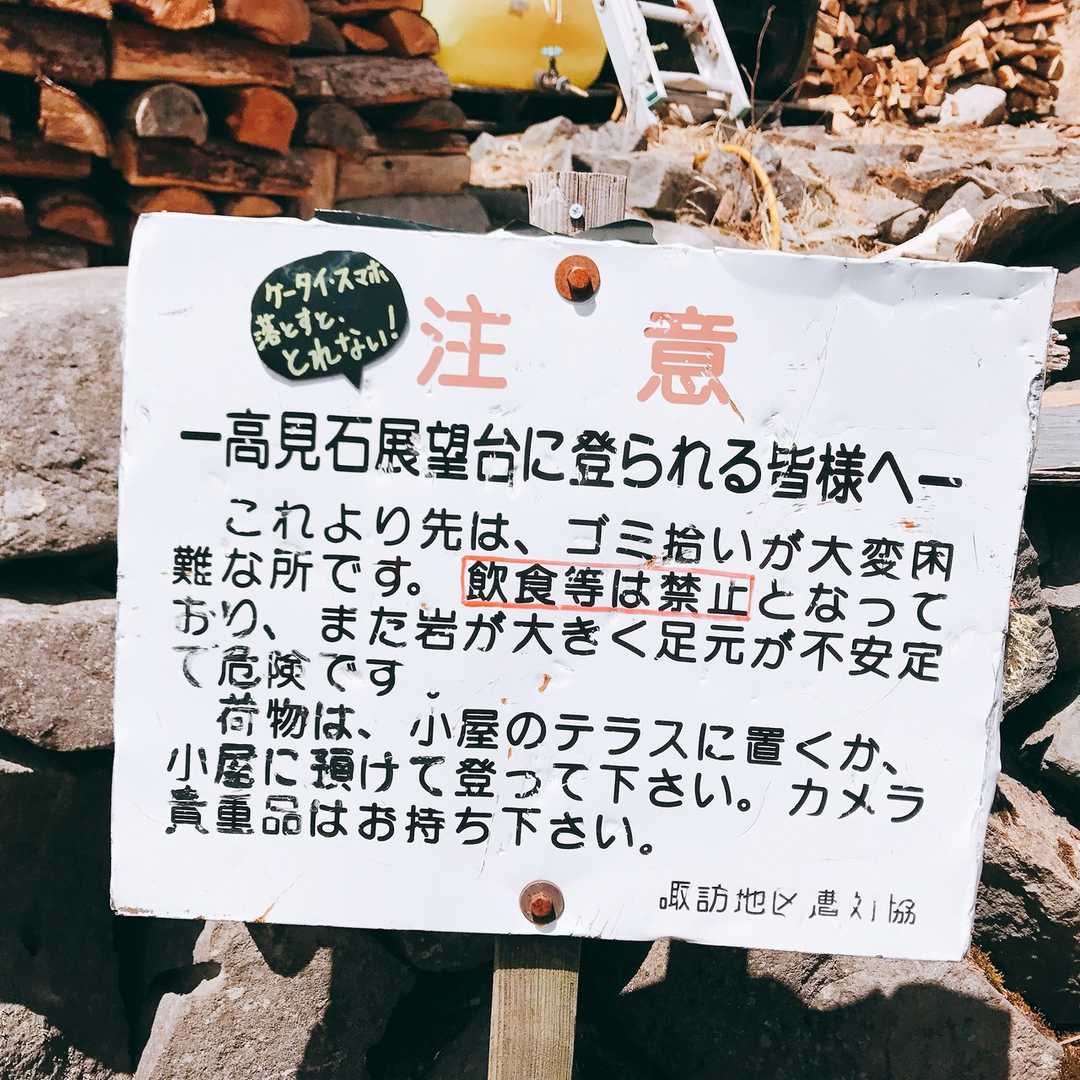 ケータイ・スマホ
落とすと、
とれない!
注意
ー高見石展望台に登られる皆様へー
これより先は、ゴミ拾いが大変困
難な所です。飲食等は禁止となって
おり、また岩が大きく足元が不安定
で危険です.
荷物は、小屋のテラスに置くか、
小屋に預けて登って下さい。カメラ
貴重品はお持ち下さい。
諏訪地区遭対協